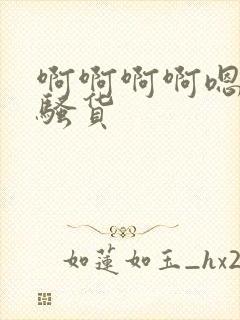 啊啊啊啊嗯
骚货
如莲如玉_hx2